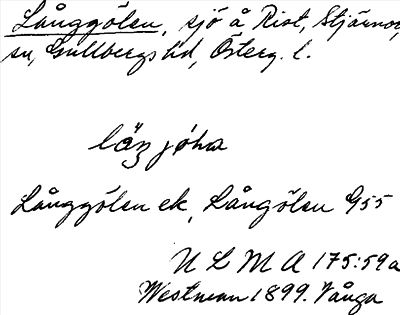 Långgölen, sjö å Rist, Stjärnor,
sn, Gullbergs hd, Österg. l.
Långgölen ek, Långölen G55
U L M A 175:59a
Westman 1899. Vånga